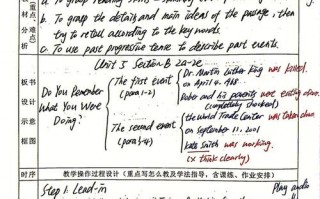 (重点、难点)
材分析
a. To group reading skills
b. To grasp the details and main ideas of the passage, then
try to retell according to the key words.
c. To use past progressive tense to describe past events.
板书设计示意框图
Unit 5 Section B 2a-2e
Do You Remember
What You Were
Doing?
The first event
(para 1-2)
Dr. Martin Luther King was killed.
on April 4, 1968
Robert and his parents were eating dinner.
(completely shocked)
The second event
(para 3-4)
the World Trade Center was taken down
on September 11, 2001
Kate Smith was working.
(x think clearly)
时序
教学操作过程设计(重点写怎么教及学法指导,含课练、作业安排)
Step 1. Lead-in
Play audio